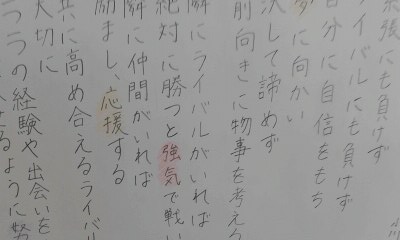 緊張にも負けず
イバルにも負けず
自分に自信をもち
夢に向かい
決して諦めず
前向きに物事を考え
隣にライバルがいれば
絶対に勝つと強気で戦い
隣に仲間がいれば
励まし、応援する
共に高め合えるライバル
大切に
ララの経験や出会いを
るように努